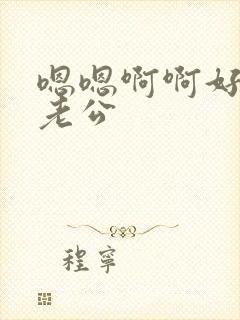 嗯嗯啊啊好
老公
程寧